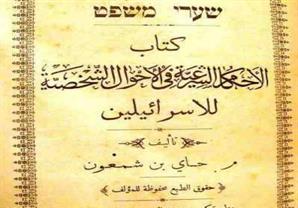 שערי משפט
كتاب
الاحكام الشرعية في الاحوال الشخصية
للاسرائيلين
تأليف
م. حاي بن شمعون
حقوق الطبع محفوظة للمؤلف